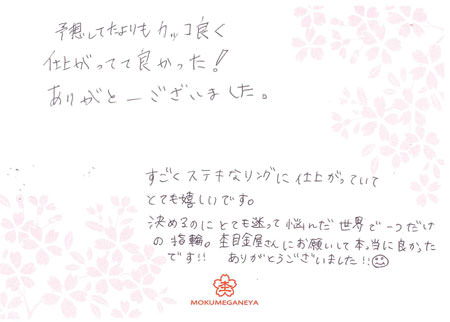 予想してたよりもカッコ良く
仕上がってて良かった!
ありがとーございました。
すごくステキなリングに仕上がっていて
とても嬉しいです。
決めるのにとても迷って悩んだ世界で一つだけ
の指輪。杢目金屋さんにお願いして本当に良かった
です!! ありがとうございました!!
杢
MOKUMEGANEYA